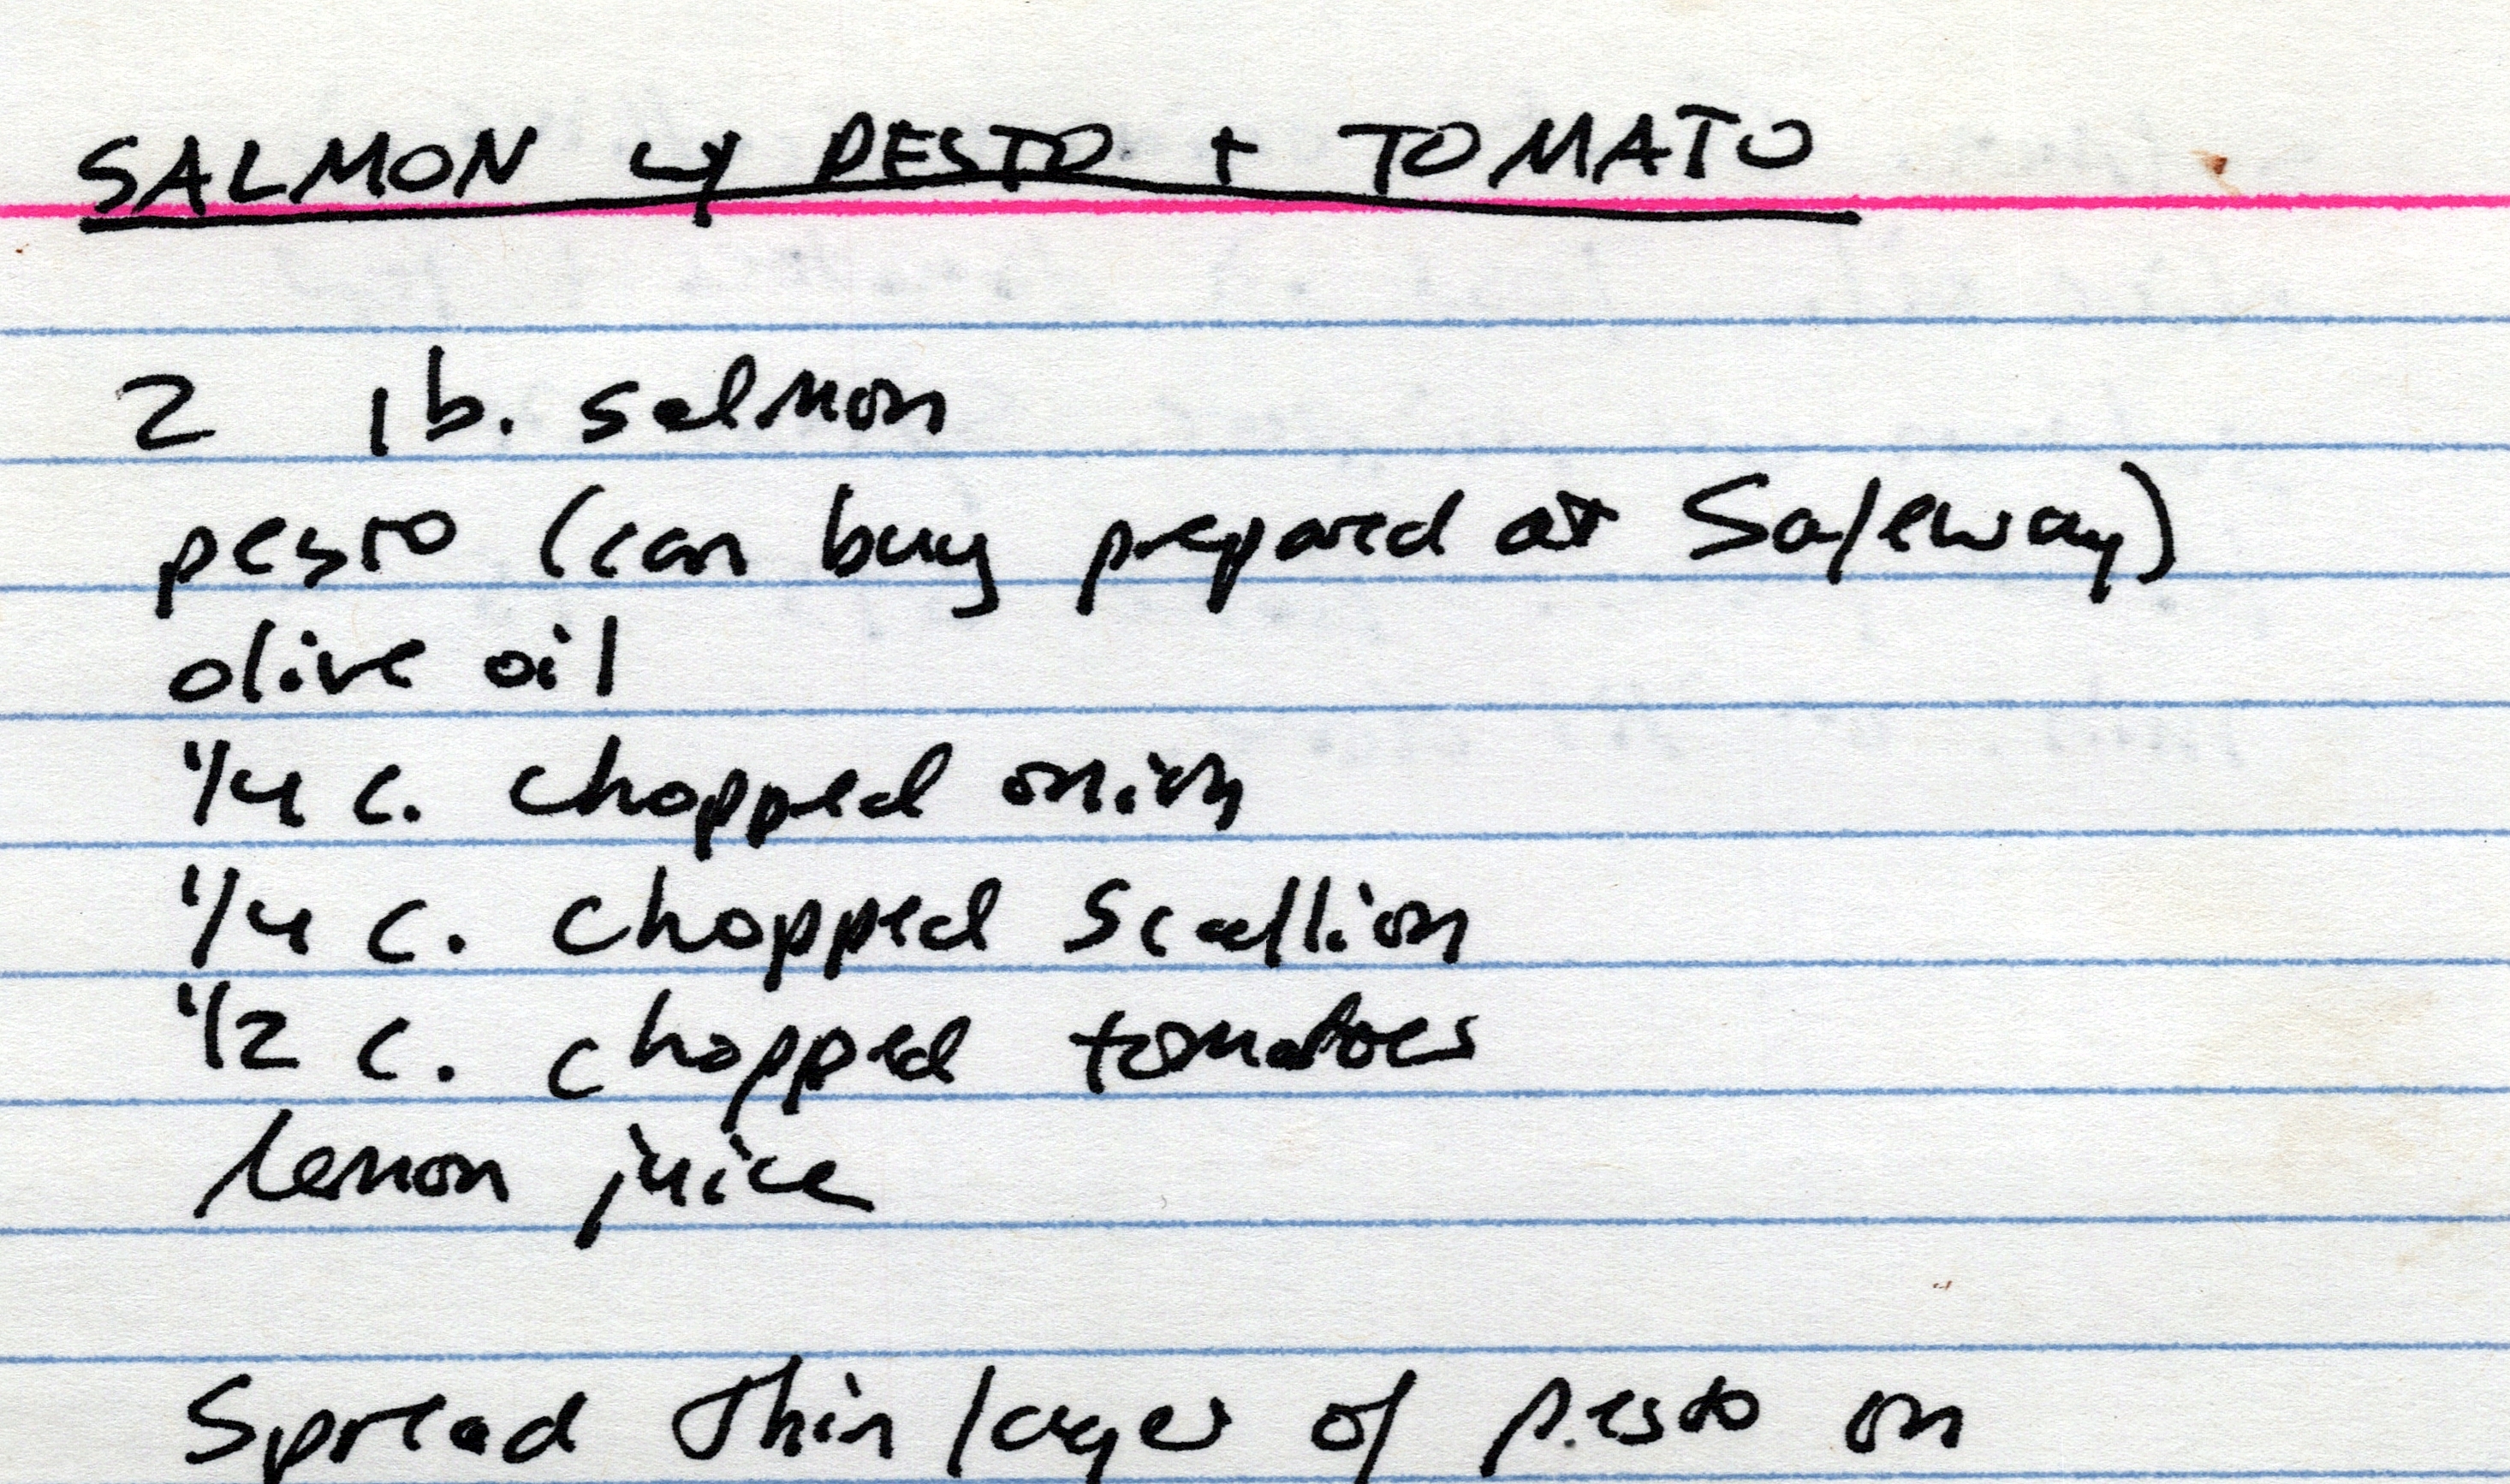 SALMON w/ PESTO + TOMATO
2 lb. salmon
pesto (can buy prepared at Safeway)
olive oil
1/4 c. chopped onion
1/4 c. chopped scallion
1/2 c. chopped tomatoes
lemon juice
Spread thin layer of pesto on